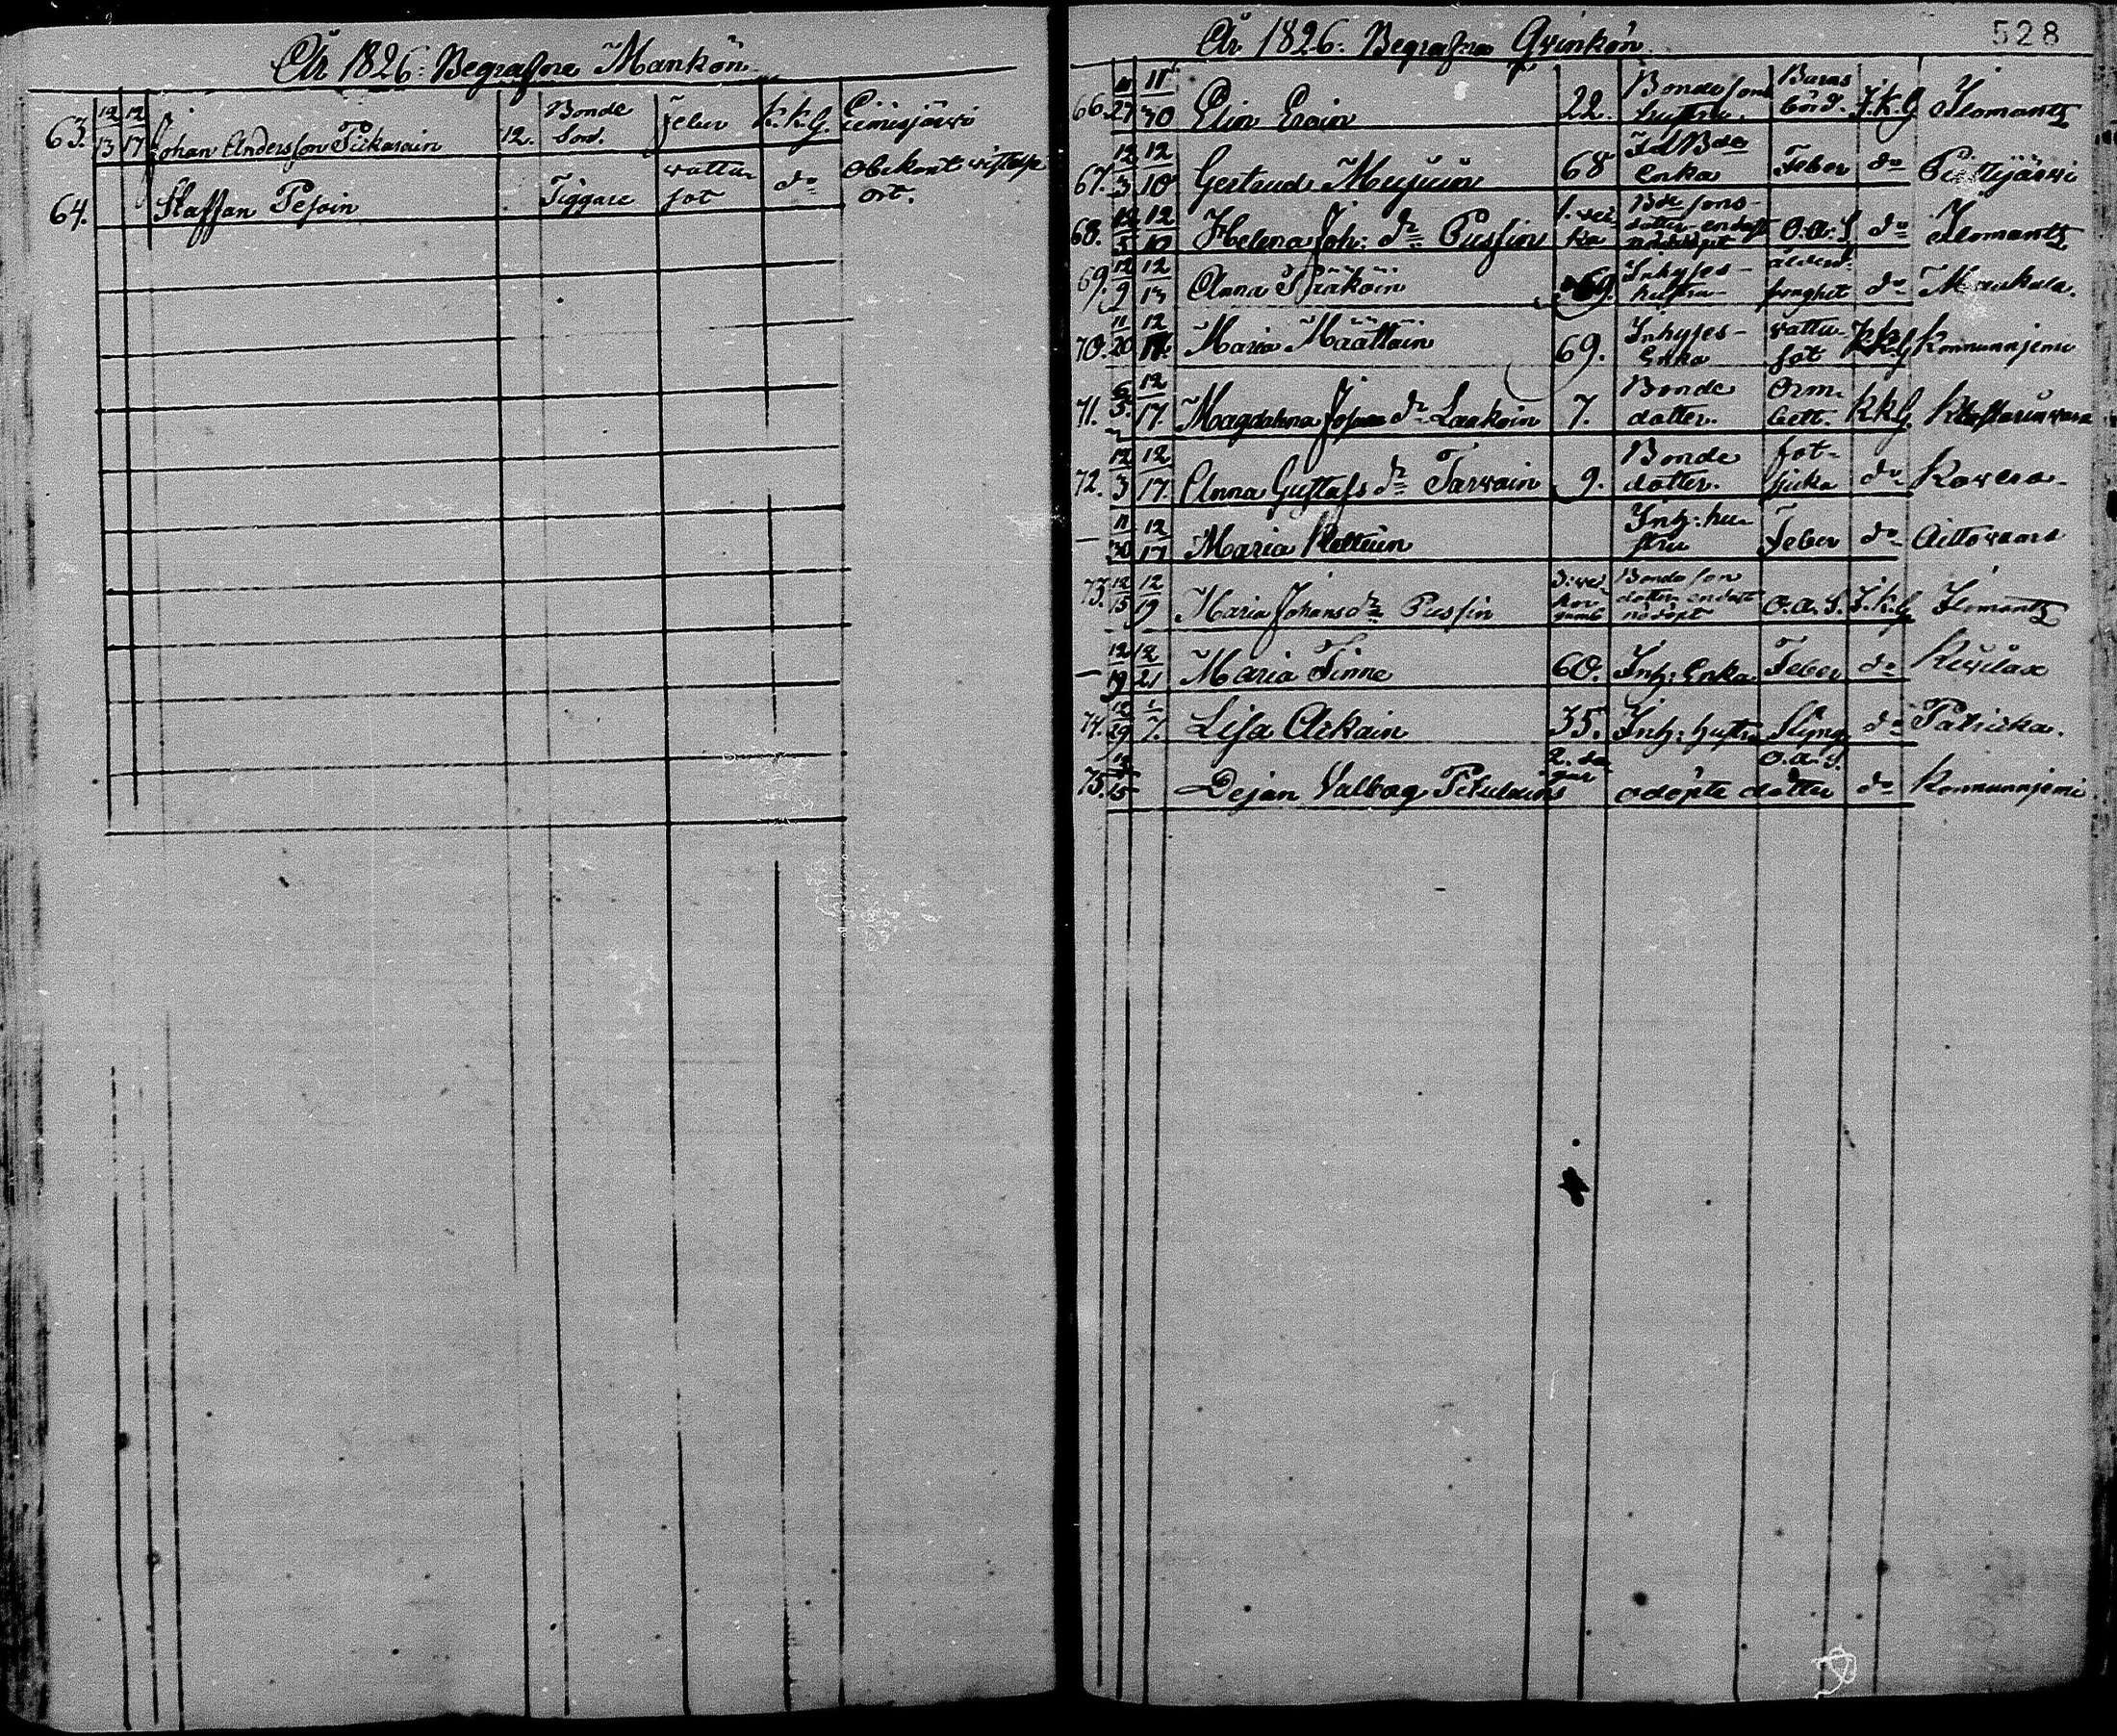 År 1826. Begrafne Mankön
63. 12/13 12/17 Johan Andersson Pitkarain 12. Bonde Son. feber k.k.G.
64. Staffan Pesoin Tiggare wattu sot do obekant wistelse ort.
År 1826. Begrafna Qvinkön
528
66. 11/27 11/30 Elin Eroin 22. Bonde sons hustru. Barns börd. J.k.G Ilomantz
67. 12/3 12/10 Gertrud Mujuin 68 Enka Feber do
68. 12/5 12/10 Helena Joh: dr Pussin 1. vec ka Bde sons dotter endast nöddöpt O.a.S do Ilomantz
69. 12/9 12/13 Anna 69. Inhyses hustru do
70. 11/20 12/17 Maria Määttäin 69. Inhyses Enka wattu sot k.k.G
71. 12/17. Magdalena dr Laakoin 7. Bonde dotter. Orm bett. k.k.G.
72. 12/3 12/17. Anna Gustafs dr Tarvain 9. Bonde dotter. sot sjuka do Kovero
— 11/30 12/17 Maria Inh: hu stru Feber do Aittovaara
73. 12/15 12/19 Maria Johans dr Pussin 3: vec kor gaml Bonde son dotter endast nödöpt O.a.S. J.k.G Ilomantz
— 12/19 12/21 Maria Sinne 60. Inh: Enka Feber do Kivilax
74. 12/29 1/7. Lisa Arkain 35. Inh: hustru Styng do Patrikka.
75. Dejan Valbog 2. da gar odöpte dotter O.a.S. do